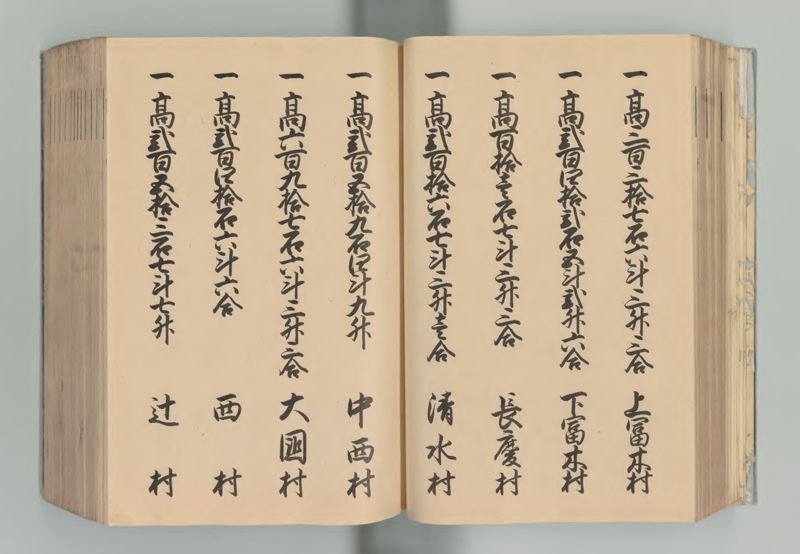 一高三百三拾七石六斗三升三合 上富木村
一高弐百四拾弐石五斗弐升六合 下富木村
一高百拾壱石七斗三升三合 長慶村
一高弐百拾六石七斗三升壱合 清水村
一高弐百五拾九石四斗九升 中西村
一高六百九拾七石六斗三升三合 大国村
一高弐百四拾石六斗六合 西村
一高弐百五拾三石七斗七升 辻村